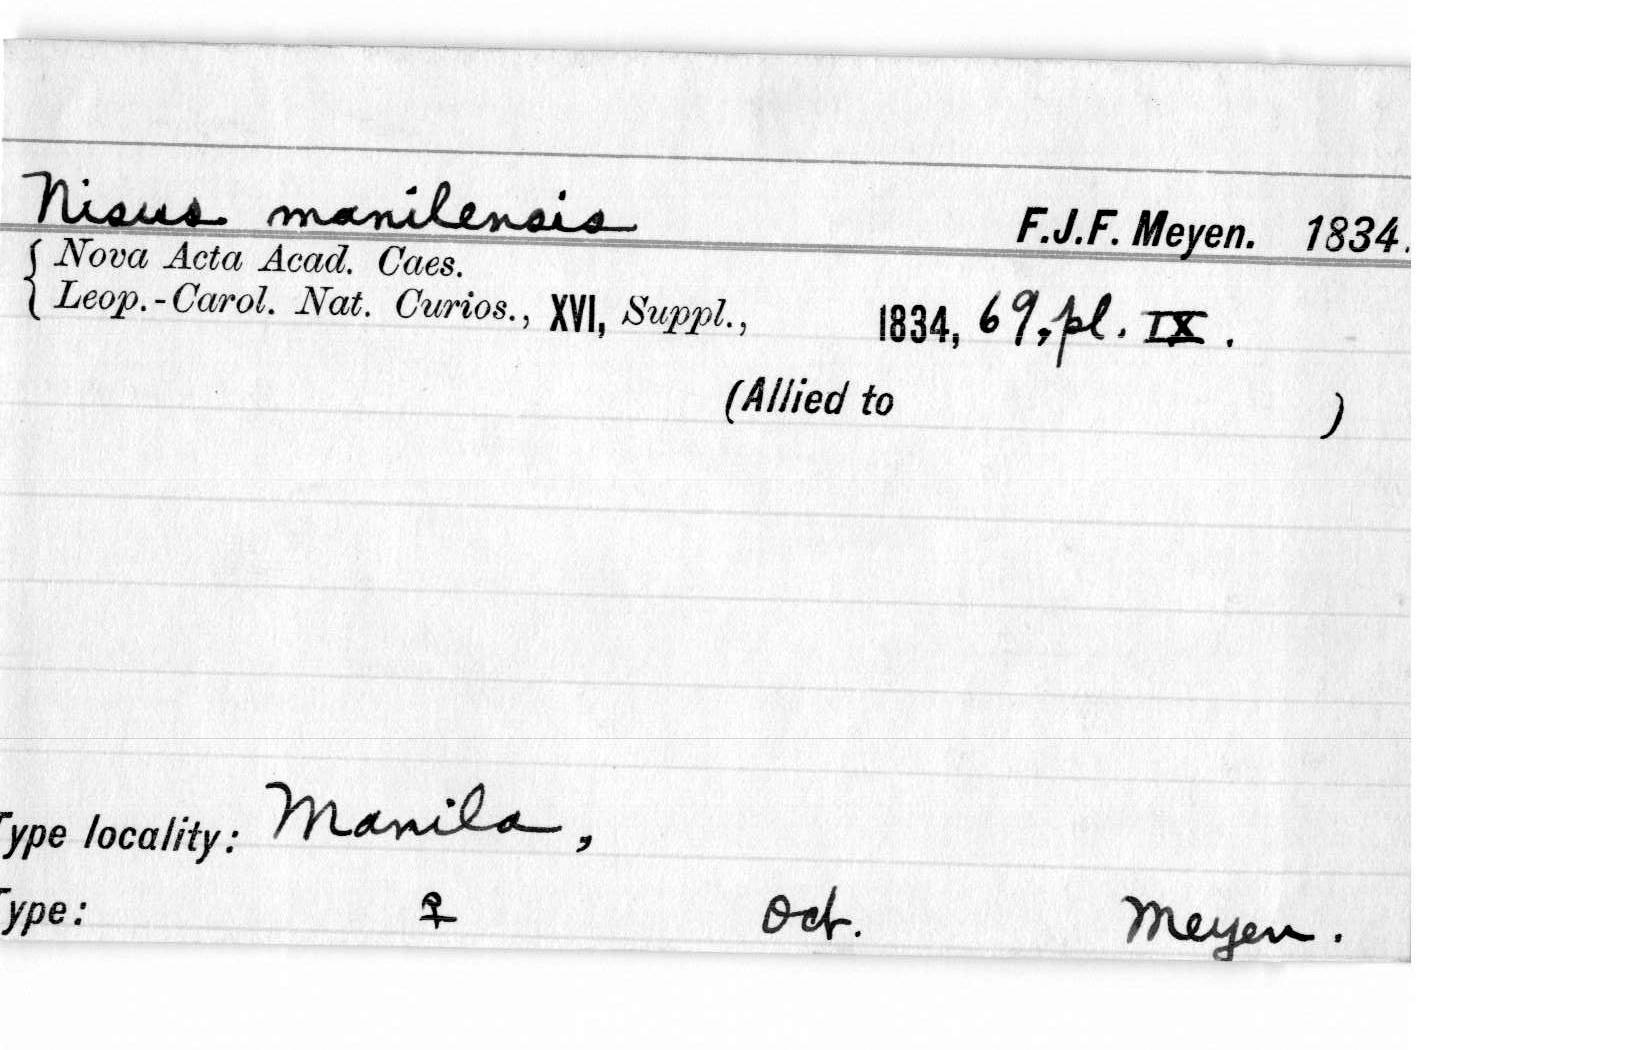 Nisus manilensis F.J.F. Meyen. 1834.
{ Nova Acta Acad. Caes.
Leop.-Carol. Nat. Curios., XVI, Suppl., 1834, 69, pl. IX.
(Allied to )
Type locality: Manila,
Type: ♀ Oct. Meyen.